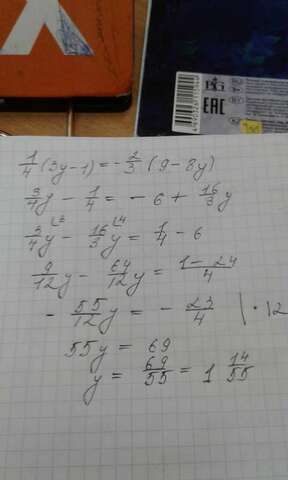 EAC
1/4 (3y-1) = -2/3 (9-8y)
3/4 y - 1/4 = -6 + 16/3 y
3/4 y - 16/3 y = 1/4 - 6
9/12 y - 64/12 y = 1-24/4
- 55/12 y = - 23/4 | · 12
55y = 69
y = 69/55 = 1 14/55